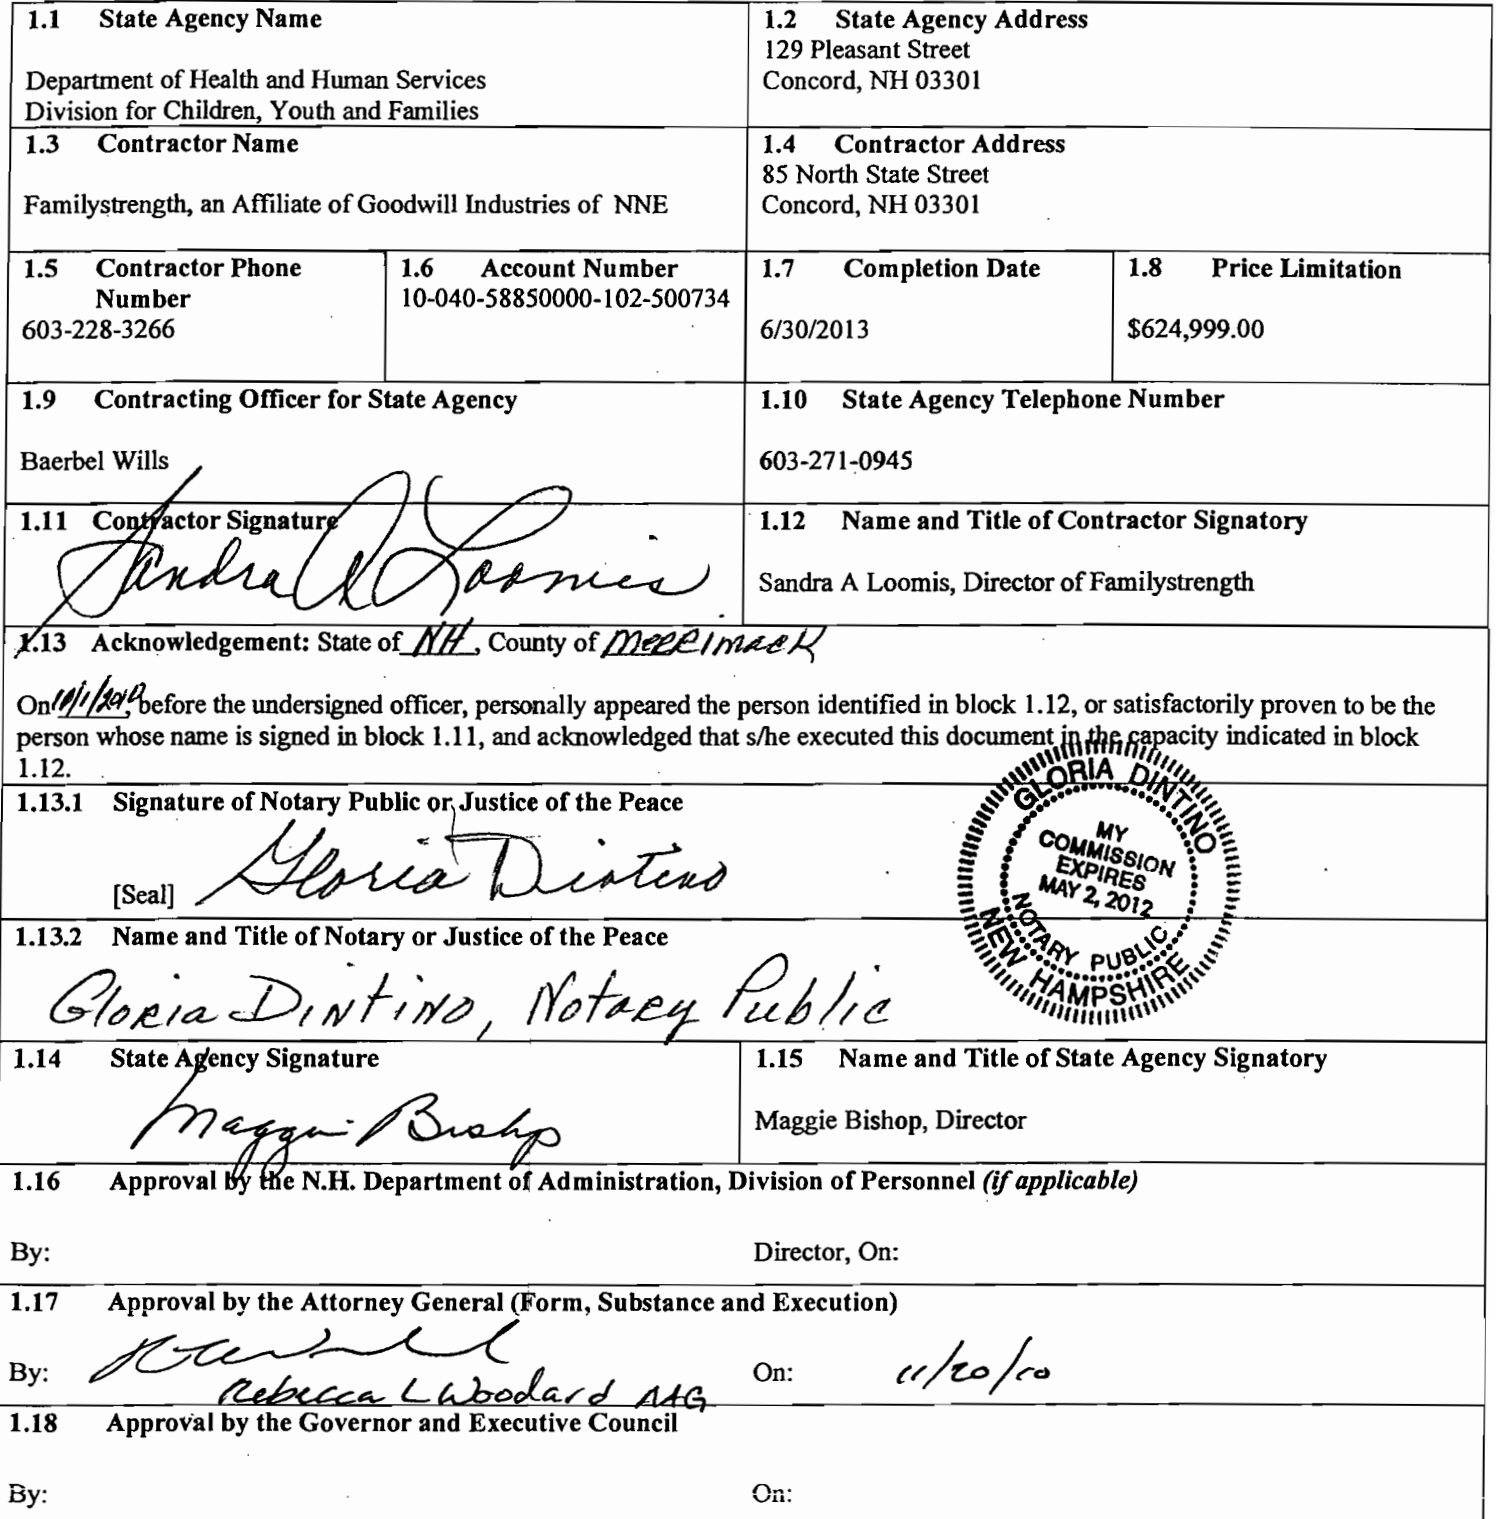 1.1 State Agency Name
Department of Health and Human Services
Division for Children, Youth and Families
1.2 State Agency Address
129 Pleasant Street
Concord, NH 03301
1.3 Contractor Name
Familystrength, an Affiliate of Goodwill Industries of NNE
1.4 Contractor Address
85 North State Street
Concord, NH 03301
1.5 Contractor Phone
Number
603-228-3266
1.6 Account Number
10-040-58850000-102-500734
1.7 Completion Date
6/30/2013
1.8 Price Limitation
$624,999.00
1.9 Contracting Officer for State Agency
Baerbel Wills
1.10 State Agency Telephone Number
603-271-0945
1.11 Contractor Signature
Sandra A Loomis
1.12 Name and Title of Contractor Signatory
Sandra A Loomis, Director of Familystrength
1.13 Acknowledgement: State of NH, County of Merrimack
On 10/1/2010, before the undersigned officer, personally appeared the person identified in block 1.12, or satisfactorily proven to be the
person whose name is signed in block 1.11, and acknowledged that s/he executed this document in the capacity indicated in block
1.12.
1.13.1 Signature of Notary Public or Justice of the Peace
Gloria Dintino
[Seal]
GLORIA DINTINO
MY
COMMISSION
EXPIRES
MAY 2, 2012
NOTARY PUBLIC
NEW HAMPSHIRE
1.13.2 Name and Title of Notary or Justice of the Peace
Gloria Dintino, Notary Public
1.14 State Agency Signature
Maggie Bishop
1.15 Name and Title of State Agency Signatory
Maggie Bishop, Director
1.16 Approval by the N.H. Department of Administration, Division of Personnel (if applicable)
By: Director, On:
1.17 Approval by the Attorney General (Form, Substance and Execution)
By: On: 11/20/10
Rebecca L Woodard AAG
1.18 Approval by the Governor and Executive Council
By: On: